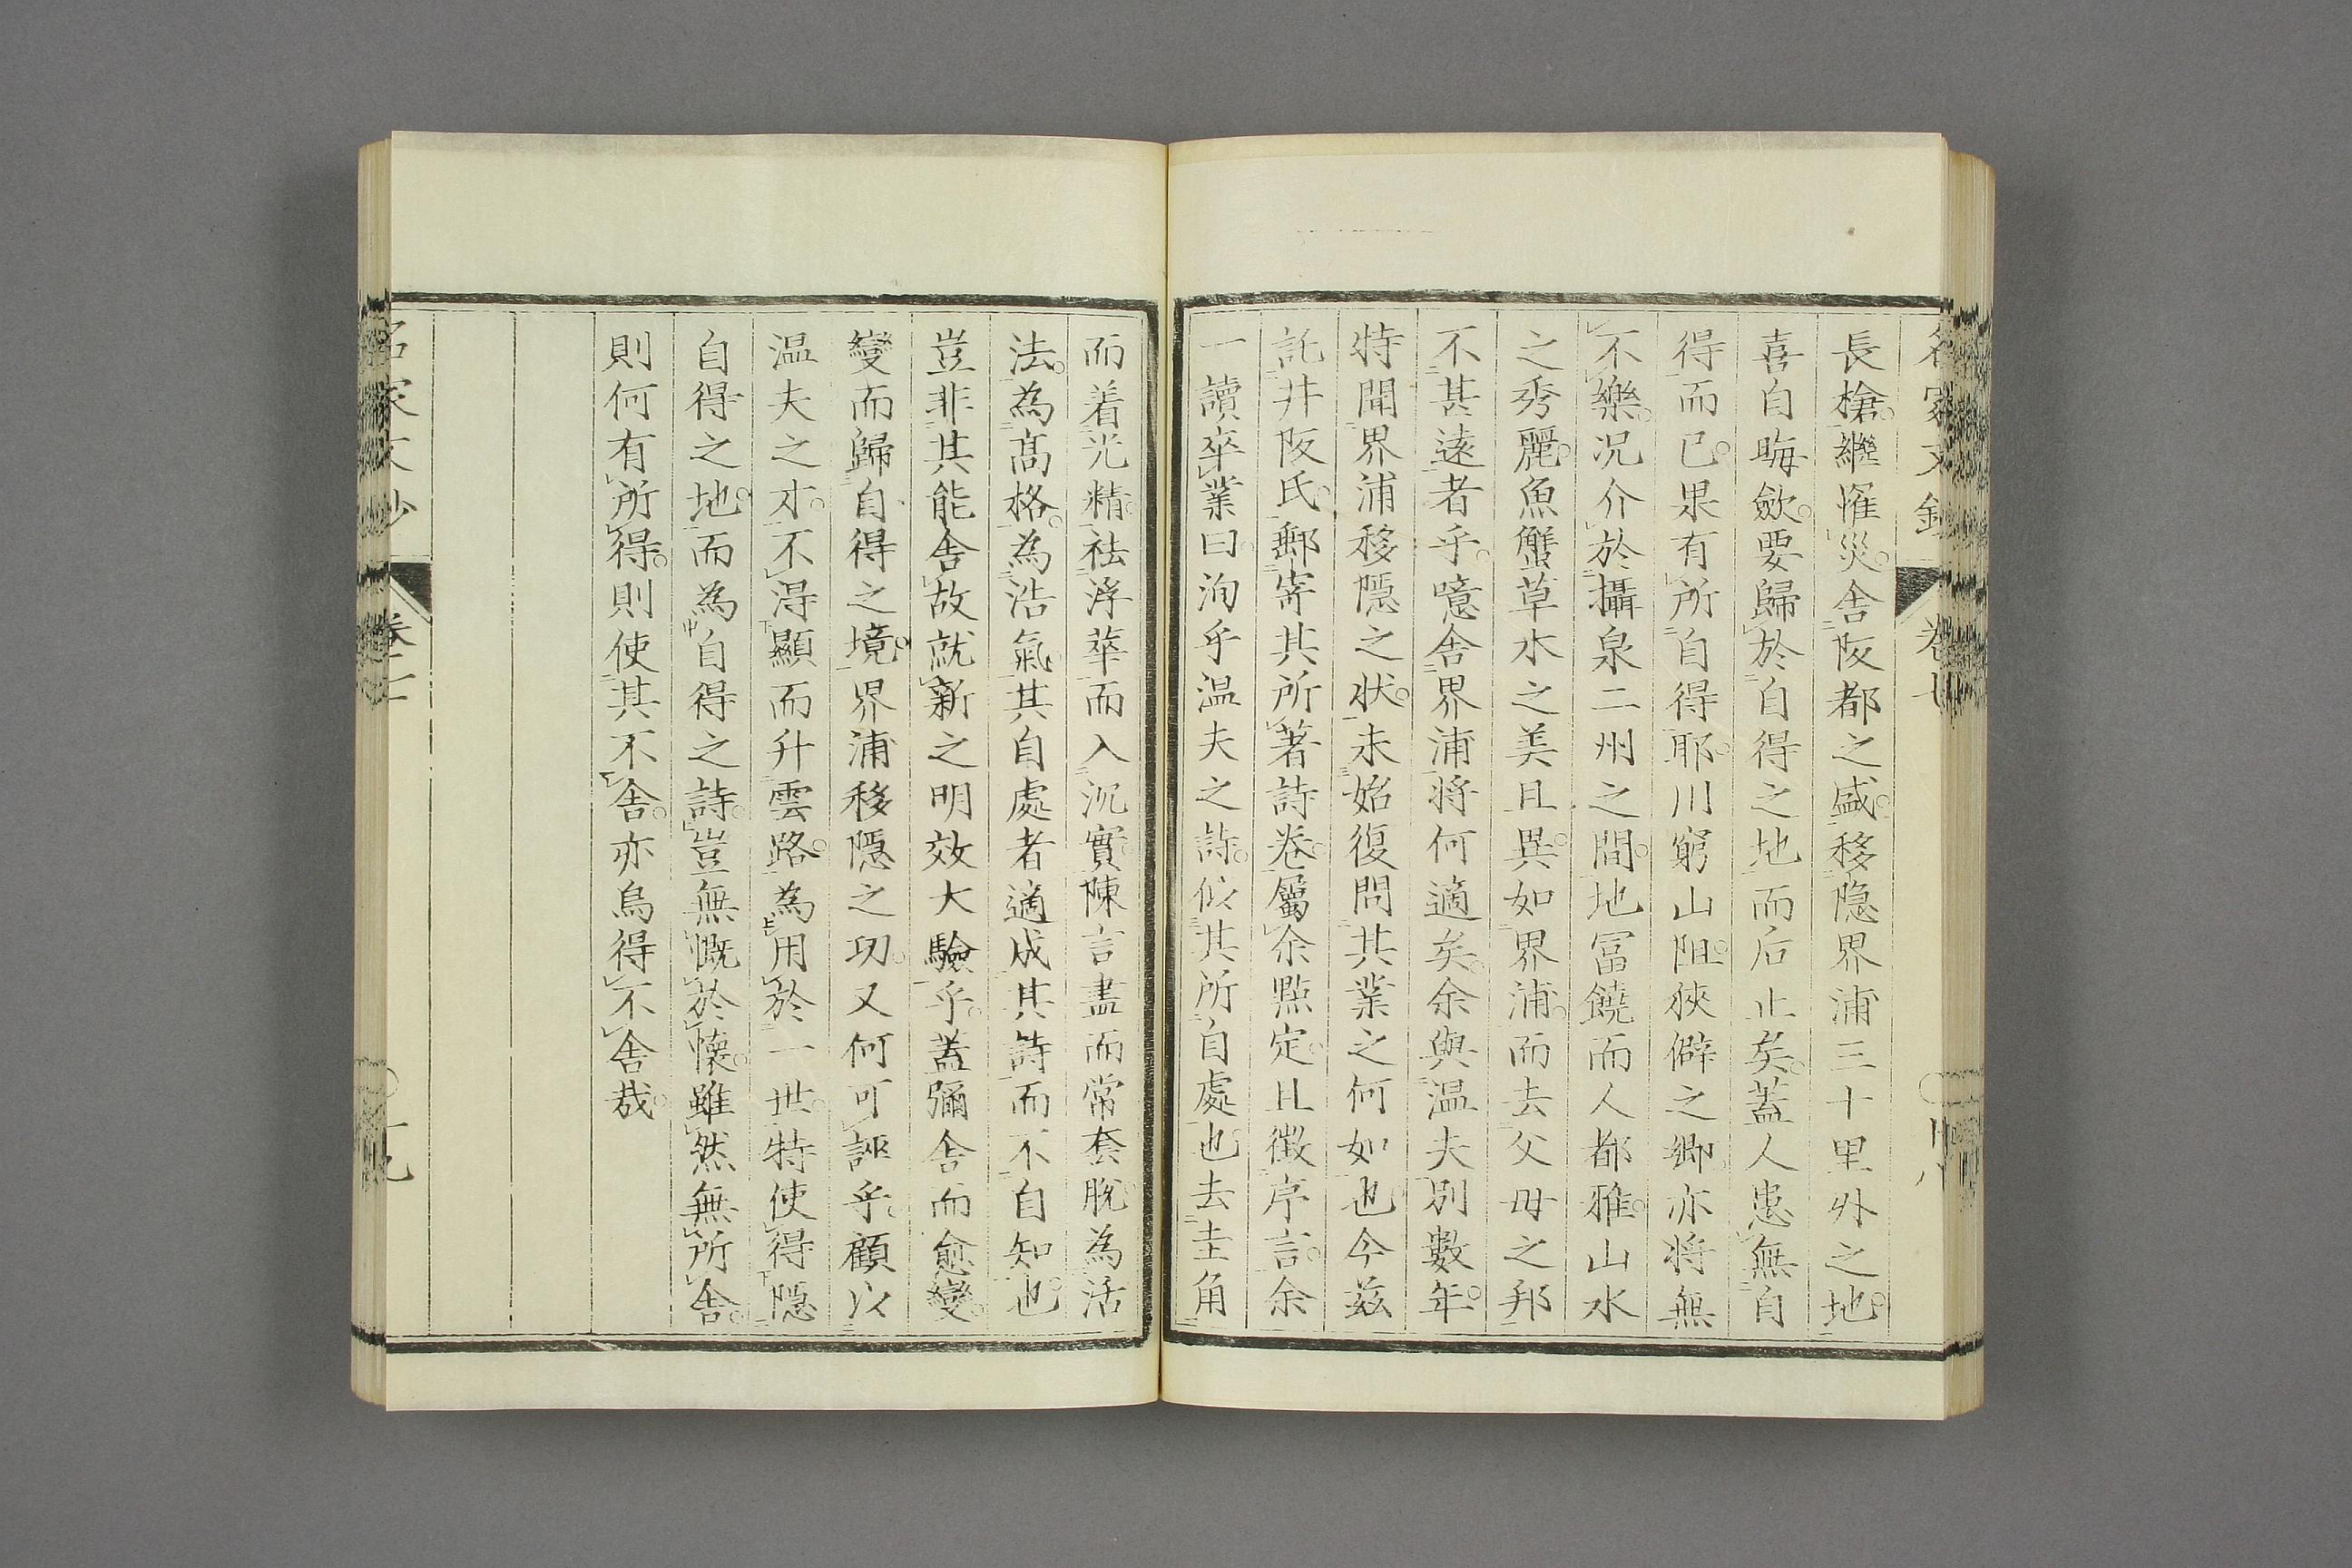 長槍繼罹災舍阪都之盛移隠界浦三十里外之地
喜自晦歛要歸於自得之地而后止矣蓋人患無自
得而已果有所自得耶川窮山阻狹僻之鄉亦将無
不樂况介於攝泉二州之間地冨饒而人都雅山水
之秀麗魚蟹草木之美且異如界浦而去父母之邦
不甚遠者乎噫舍界浦将何適矣余與温夫別數年
特聞界浦移隠之状未始復問其業之何如也今茲
託井阪氏郵寄其所著詩巻屬余㸃定且徵序言余
一讀卒業曰洵乎温夫之詩似其所自處也去圭角
而着光精祛浮華而入沉實陳言盡而常套脫為活
法為髙格為浩氣其自處者適成其詩而不自知也
豈非其能舍故就新之明效大驗乎蓋彌舍而愈變
變而歸自得之境界浦移隠之功又何可誣乎顧以
温夫之才不得顯而升雲路為用於一世特使得隠
自得之地而為自得之詩豈無慨於懷雖然無所舍
則何有所得得則使其不舍亦烏得不舍哉